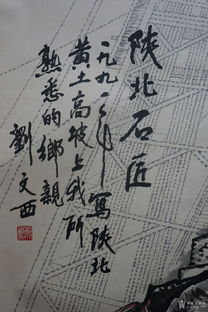 陕北石匠
一九九一年写陕北
黄土高坡上我所
熟悉的鄉親
劉文西